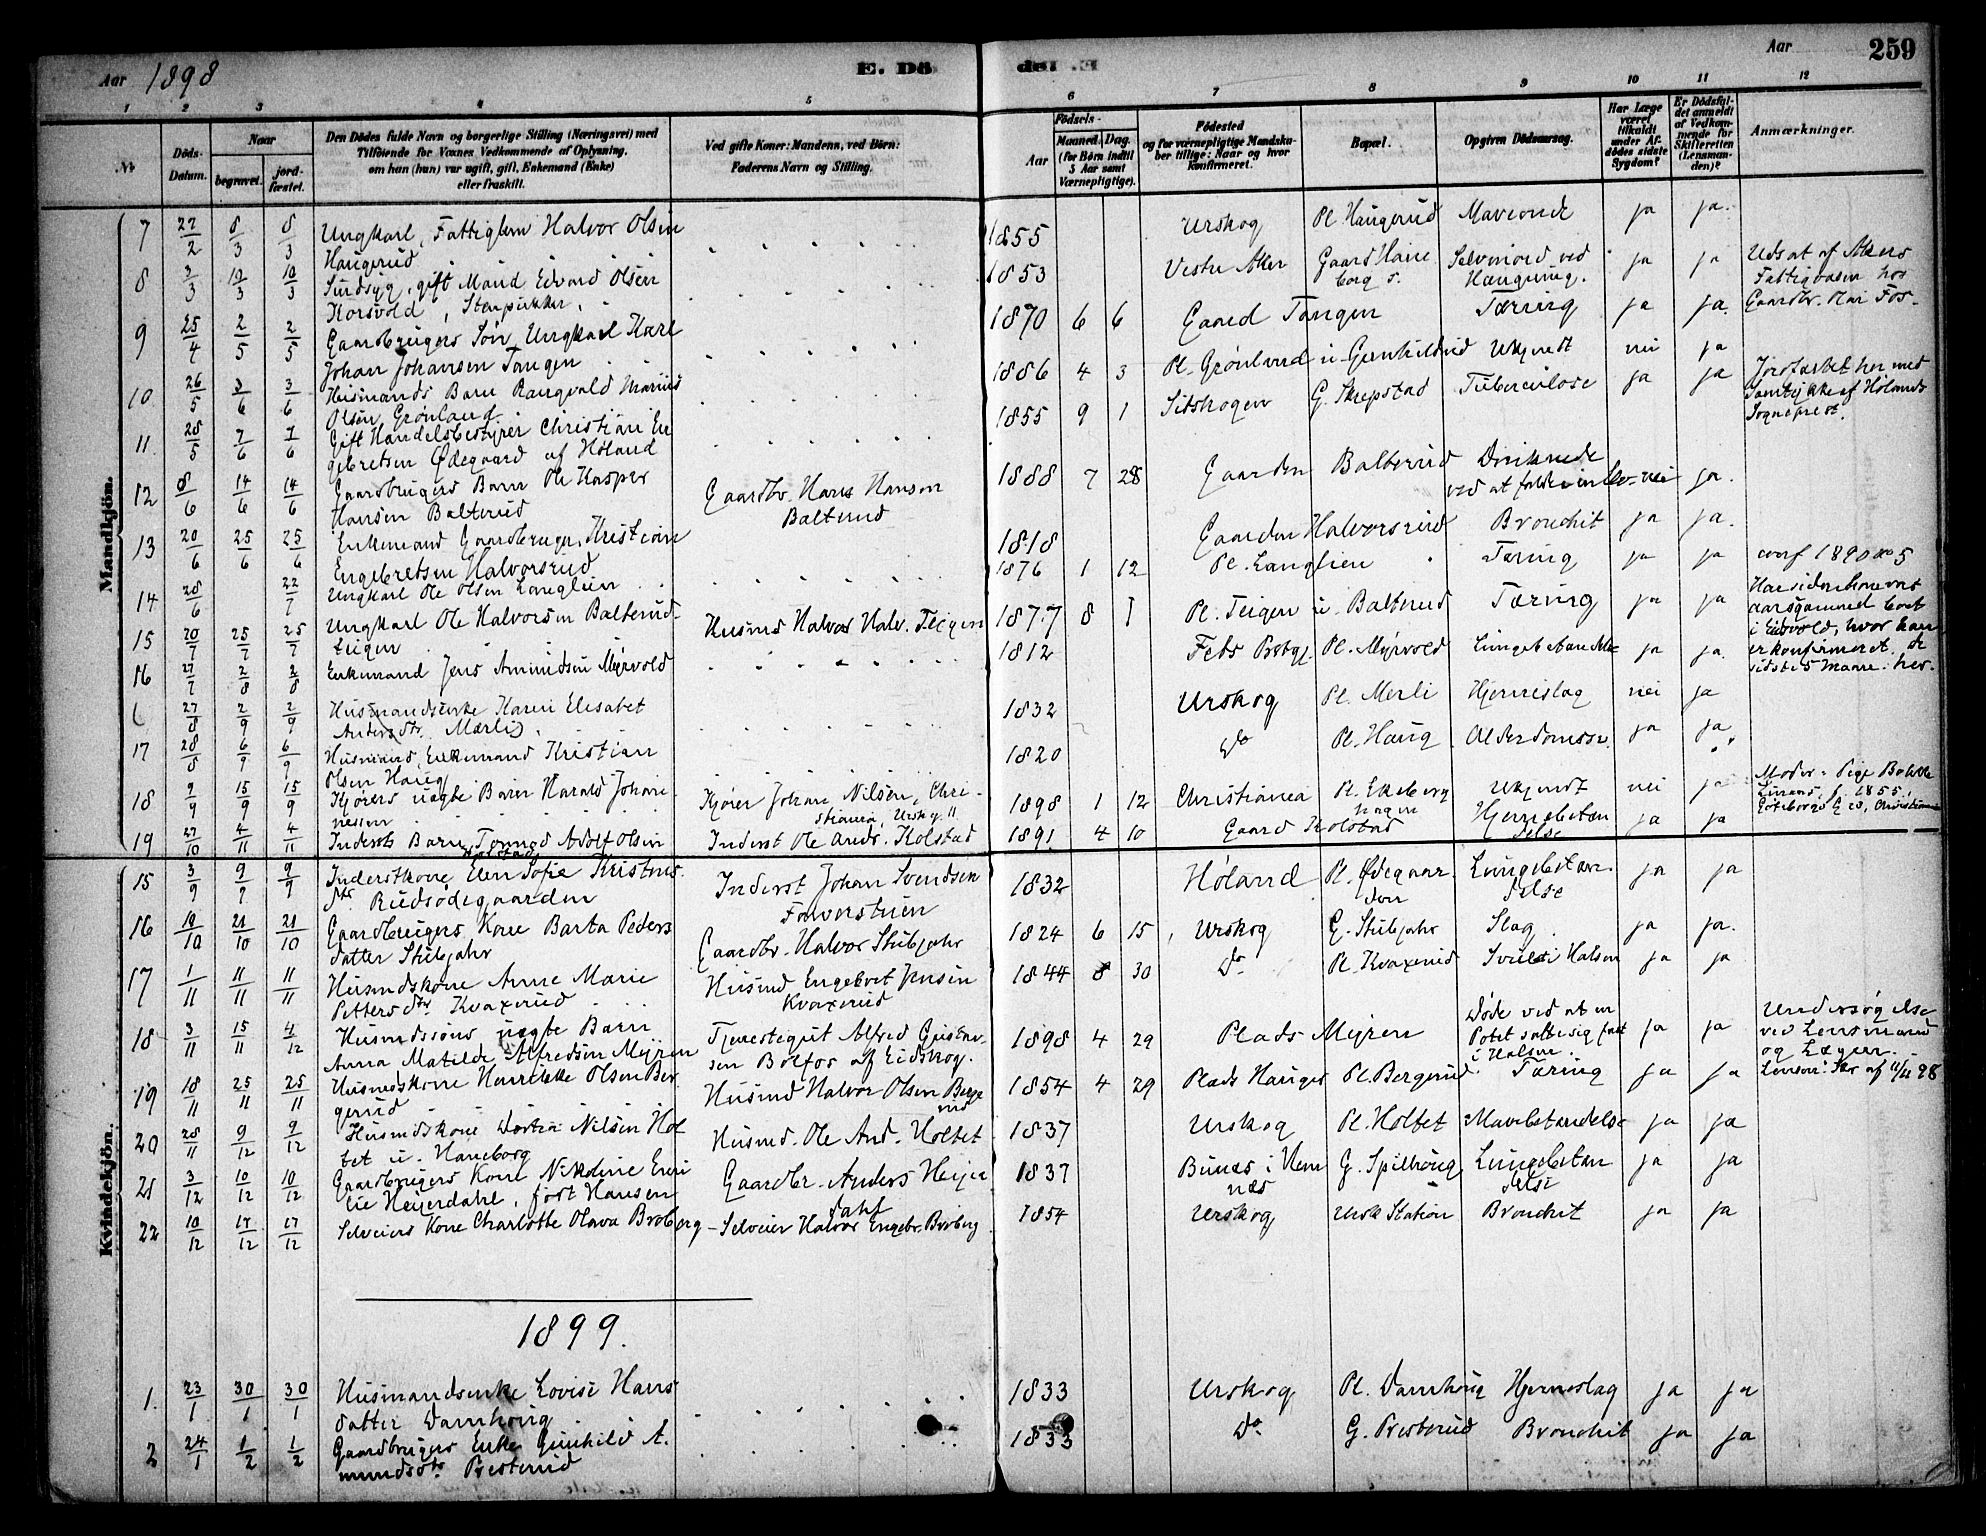 Aar 1898
E. Dö
del E
Aar
259
1 2 3 4 5 6 7 8 9 10 11 12
No
Döds-Datum.
Naar
begravet.
jord-fæstet.
Den Dödes fulde Navn og borgerlige Stilling (Næringsvei) med
Tilföiende for Voxnes Vedkommende af Oplysning,
om han (hun) var ugift, gift, Enkemand (Enke)
eller fraskilt.
Ved gifte Koner: Mandens, ved Börn:
Faderens Navn og Stilling.
Födsels-
Aar
Maaned. Dag.
(for Börn indtil
5 Aar samt
Værnepligtige).
Födested
og for værnepligtige Mandska-
ber tillige: Naar og hvor
konfirmeret.
Bopæl.
Opgiven Dödsaarsag.
Har Læge
været
tilkaldt
under Af-
dödes sidste
Sygdom?
Er Dödsfal-
det anmeldt
af Vedkom-
mende for
Skifteretten
(Lensman-
den)?
Anmærkninger.
Mandkjön.
7 22/2 8/3 8/3 Ungkarl, Fattiglem Halvor Olsen 1855 Urskog Pl. Haugerud Mavionde ja ja.
Haugerud
8 3/3 10/3 10/3 Sindsyg, gift Mand Edvard Olsen 1853 Vestre Aker Gaard Hane Selvmord ved ja ja Udsat af Akers
Korsvold, Stenpikker. borg s. Hængning. Fattigvæsen hos
Gaardbr. Mari Fos-
9 25/4 2/5 2/5 Gaardbrugers Søn, Ungkarl Karl 1870 6 6 Gaard Tangen Tæring ja ja.
Johan Johansen Tangen
10 26/5 3/6 3/6 Husmands Barn Rangvald Marius 1886 4 3 Pl. Grønland u. Gunhildrud Ukjendt nei ja
Olsen Grønland
11 28/5 7/6 7/6 Gift Handelsbestyrer Christian En 1855 9 1 Setskogen G. Skrepstad Tuberculose ja ja Jordfæstet her med
gebretsen Ødegaard af Høland Samtykke af Hølands
Sognepræst.
12 8/6 14/6 14/6 Gaardbrugers Barn Ole Kasper Gaardbr. Hans Hansen 1888 7 28 Gaarden Balterud Druknede nei ja.
Hansen Balterud Balterud ved at falde i en
13 20/6 25/6 25/6 Enkemand Gaardbruger Kristian 1818 Gaarden Halvorsrud Bronchit ja ja.
Engebretsen Halvorsrud
14 28/6 22/7 Ungkarl Ole Olsen Langlien 1876 1 12 Pl. Langlien Tæring ja ja conf 1890 no 5
15 20/7 25/7 25/7 Ungkarl Ole Halvorsen Balterud- Husmd Halvor Halv. Teigen 1877 8 1 Pl. Teigen u. Balterud Tæring ja ja
teigen aarsgammel boet
i Eidsvold, hvor han
er konfirmeret. De
sidste 5 Maan. her.
16 27/7 2/8 2/8 Enkemand Jens Amundsen Myrvold 1812 Fets Prstgj. Pl. Myrvold Lungebetændelse ja ja.
27/8 2/9 2/9 Husmandsenke Karen Elisabet 1832 Urskog Pl. Merli Hjerneslag nei ja
Andersdtr. Mærli
17 28/8 6/9 6/9 Husmand, Enkemand Kristian 1820 Do Pl. Haug Alderdomssv. ja ja.
Olsen Haug
18 9/9 15/9 15/9 Kjørers uægte Barn Harald Johan- Kjører Johan Nilsen, Chri- 1898 1 12 Christiania Pl. Eksberg Ukjendt nei ja Moder: Pige
nessen stiania, Ursk. hagen f. 1855,
Gøteborgs G 28, Christiania
19 27/10 4/11 4/11 Indersts Barn Tormod Adolf Olsen Inderst Ole Andr. Kolstad 1891 4 10 Gaard Kolstad Hjernebetæn ja ja
Kolstad delse
Kvindekjön.
15 3/9 9/9 9/9 Inderstkone Elen Sofie Kristens Inderst Johan Svendsen 1832 Høland Pl. Ødegaar Lungebetæn- ja ja
dtr. Rudsødegaarden Falverstuen den delse
16 19/10 21/10 21/10 Gaardbrugers Kone Barta Peders Gaardbr. Halvor Stubjahr 1824 6 15 Urskog G. Stubjahr Slag ja ja.
datter Stubjahr
17 1/11 11/11 11/11 Husmdskone Anne Marie Husmd Engebret Jensen 1844 8 30 Do Pl. Kvaxrud Svulst i Halsen ja ja
Pettersdtr Kvaxrud Kvaxrud
18 3/11 15/11 4/12 Husmdssøns uægte Barn Tjenestegut Alfred Gustav- 1898 4 29 Plads Myren Døde ved at en ja ja Undersøgelse
Anna Matilde Alfredsen Myren sen Bølfos af Eidskog. Potet satte sig fast ved Lensmand
i Halsen. og Lægen.
Lensm. Skr af 11/11 98
19 18/11 25/11 25/11 Husmdskone Henriette Olsen Ber Husmd Halvor Olsen Berge 1854 4 29 Plads Hauger Pl. Bergerud Tæring ja ja
gerud rud
20 28/11 9/12 9/12 Husmdskone Dortea Nilsen Hol Husmd. Ole And. Holtet 1837 Urskog Pl. Holtet Mavebetændelse ja ja
tet u. Haneborg
21 3/12 10/12 10/12 Gaardbrugers Kone Nikoline Emi Gaardbr. Anders Heyer 1837 Bunes i Nem G. Spilhaug Lungebetæn ja ja
lie Heyerdahl, født Hansen dahl næs delse
22 10/12 17/12 17/12 Selveiers Kone Charlotte Olava Broberg - Selveier Halvor Engebr. Broberg 1854 Urskog Ursk Station Bronchit ja ja
1899.
1. 23/1 30/1 30/1 Husmandsenke Lovise Hans 1833 Urskog Pl. Damhaug Hjerneslag ja ja
datter Damhaug
2 24/1 1/2 1/2 Gaardbrugers Enke Gunhild A. 1833 Do. G. Presterud Bronchit ja ja
mundsdtr Presterud